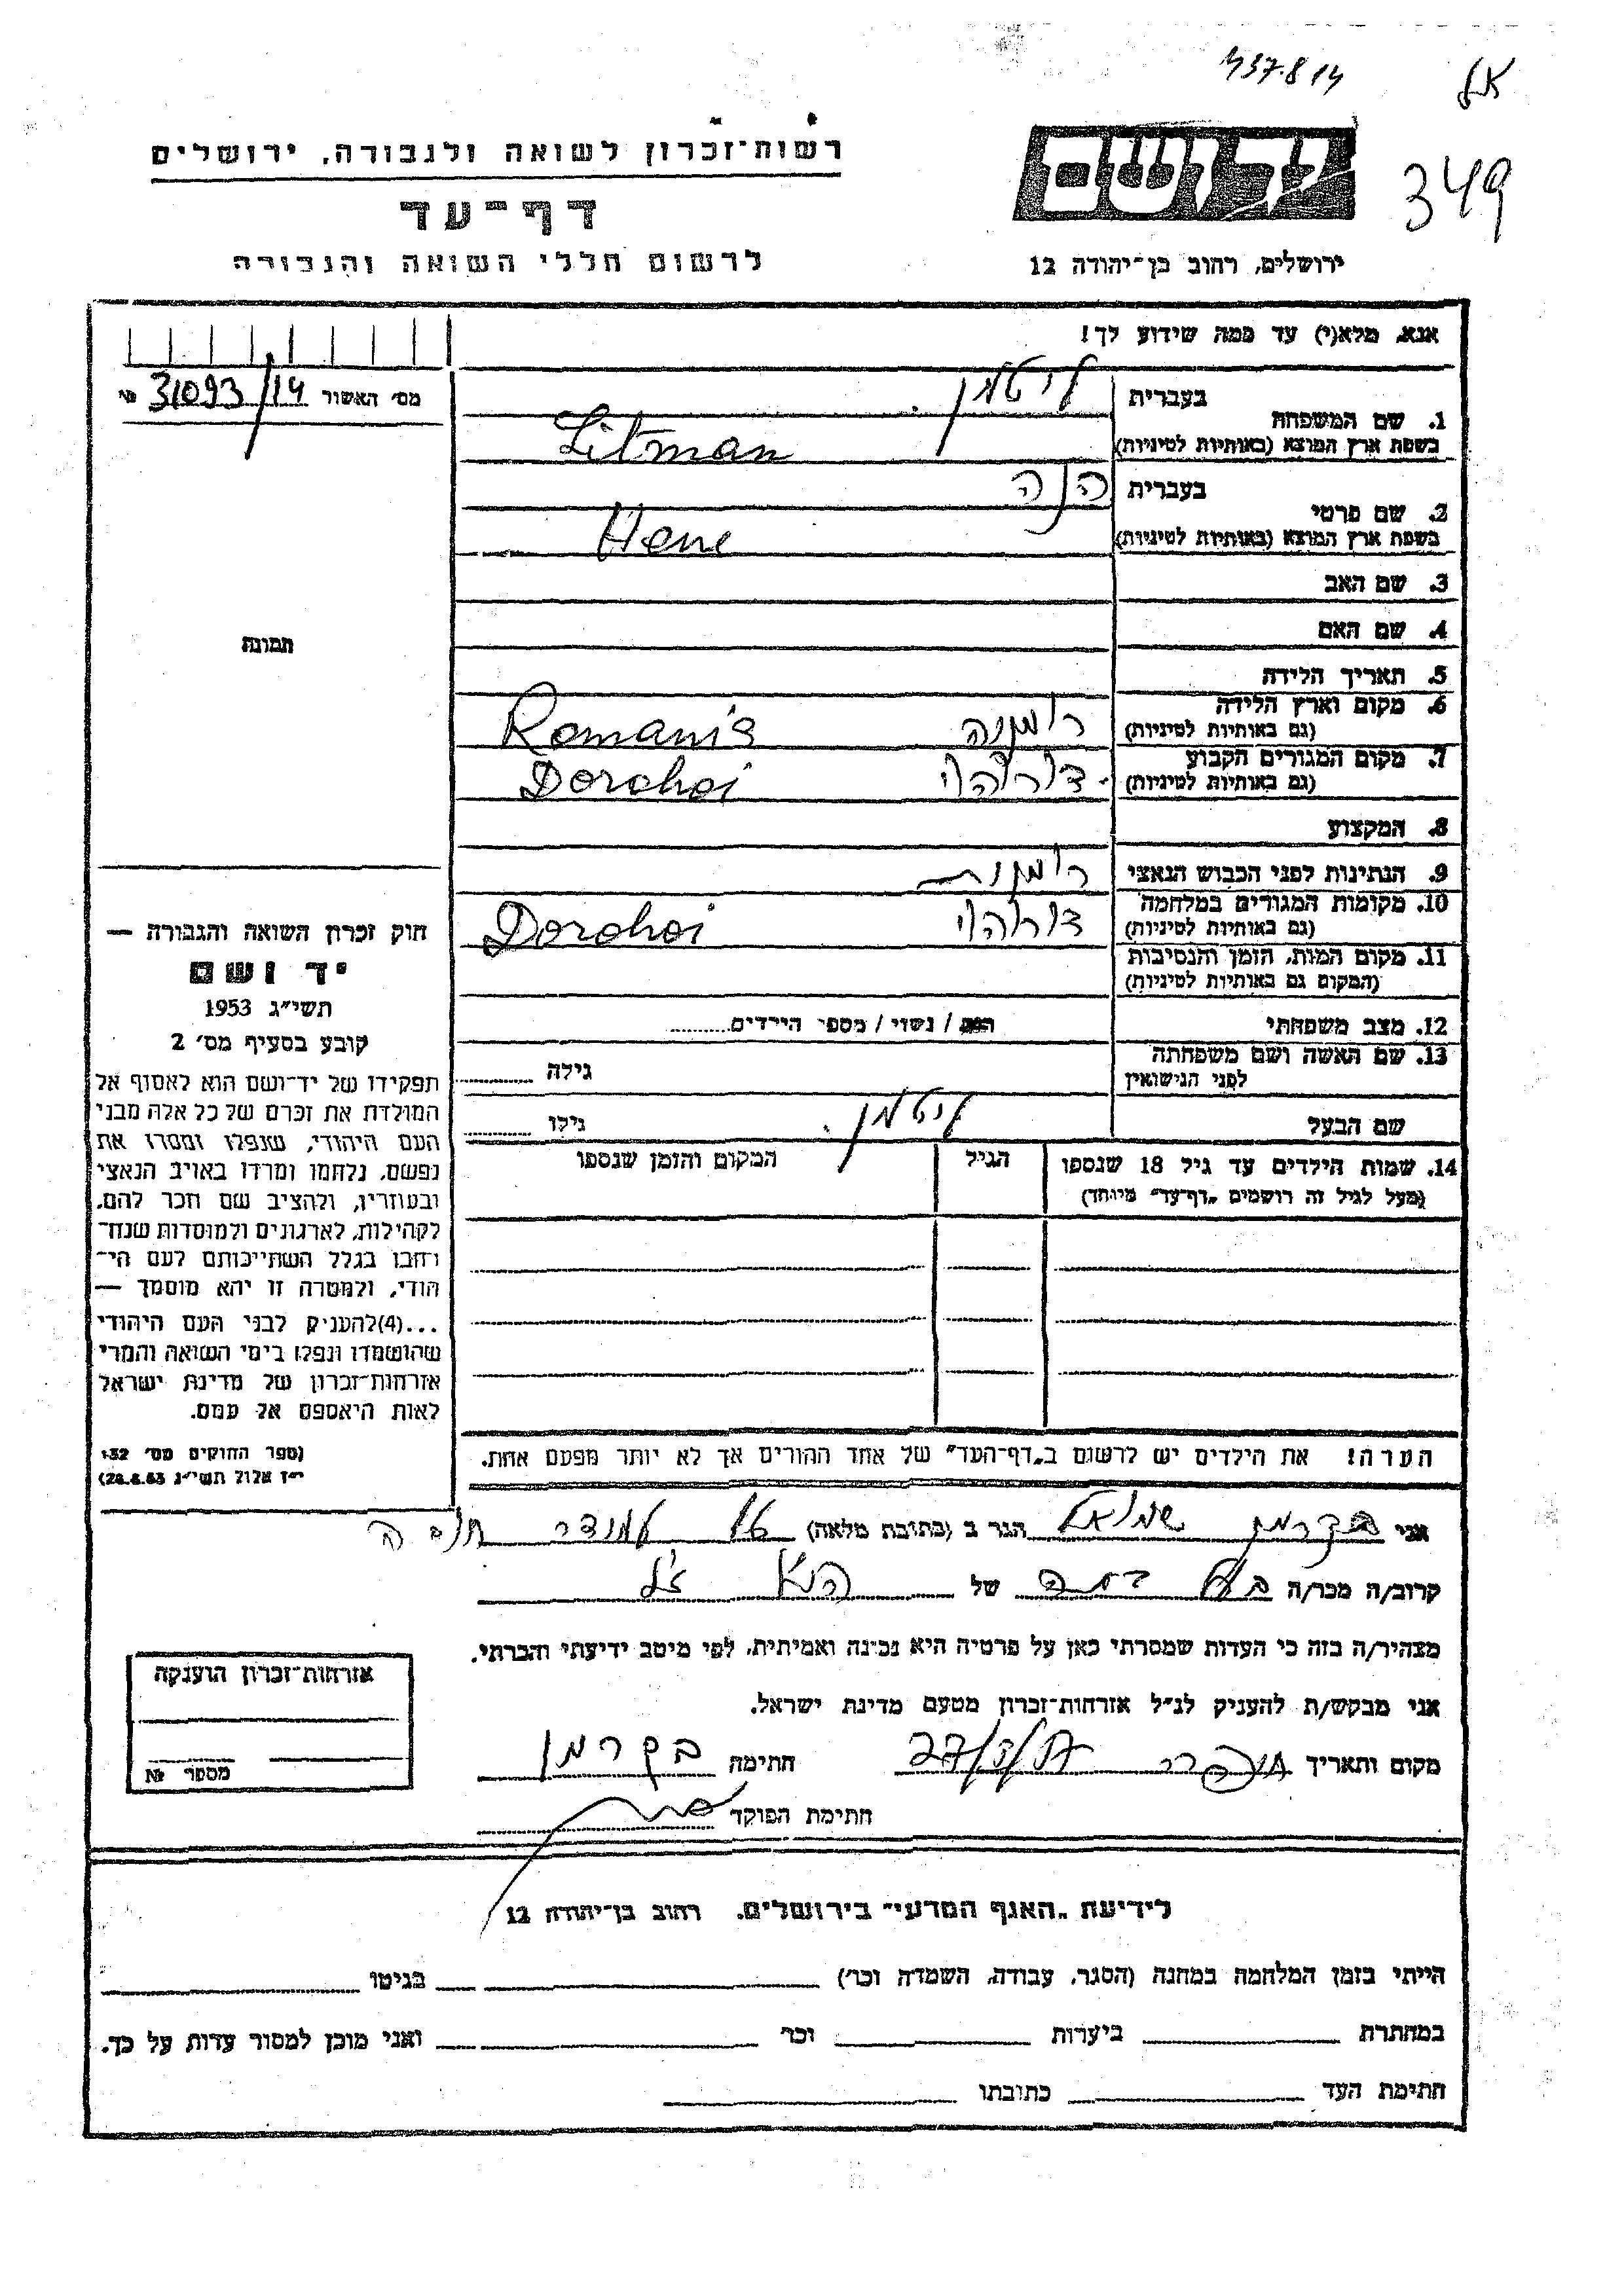 437.814
349
רשות־זכרון לשואה ולגבורה, ירושלים
דף־עד
לרשום חללי השואה והגבורה
יד ושם
ירושלים, רחוב בן־יהודה 12
אנא, מלא(י) עד כמה שידוע לך!
מס׳ האשור № 31093/14
1. שם המשפחה
בעברית ליטמן
בשפת ארץ המוצא (באותיות לטיניות) Litman
2. שם פרטי
בעברית הנה
בשפת ארץ המוצא (באותיות לטיניות) Hene
3. שם האב
4. שם האם
תמונה
5. תאריך הלידה
6. מקום וארץ הלידה
(גם באותיות לטיניות) רומניה Romania
7. מקום המגורים הקבוע
(גם באותיות לטיניות) דורוהוי Dorohoi
8. המקצוע
9. הנתינות לפני הכבוש הנאצי רומנית
10. מקומות המגורים במלחמה
(גם באותיות לטיניות) דורוהוי Dorohoi
11. מקום המות, הזמן והנסיבות
(המקום גם באותיות לטיניות)
12. מצב משפחתי / נשוי / מספר הילדים
13. שם האשה ושם משפחתה
לפני הנישואין גילה
שם הבעל ליטמן גילו
14. שמות הילדים עד גיל 18 שנספו הגיל המקום והזמן שנספו
(מעל לגיל זה רושמים „דף־עד״ מיוחד)
חוק זכרון השואה והגבורה —
יד ושם
תשי״ג 1953
קובע בסעיף מס׳ 2
תפקידו של יד־ושם הוא לאסוף אל
המולדת את זכרם של כל אלה מבני
העם היהודי, שנפלו ומסרו את
נפשם, נלחמו ומרדו באויב הנאצי
ובעוזריו, ולהציב שם וזכר להם,
לקהילות, לארגונים ולמוסדות שנח־
רבו בגלל השתייכותם לעם הי־
הודי, ולמטרה זו יהא מוסמך —
...(4)להעניק לבני העם היהודי
שהושמדו ונפלו בימי השואה והמרי
אזרחות־זכרון של מדינת ישראל
לאות היאספם אל עמם.
(ספר החוקים מס׳ 132
י״ז אלול תשי״ג 28.8.53)
הערה! את הילדים יש לרשום ב„דף־העד״ של אחד ההורים אך לא יותר מפעם אחת.
אני שמואל הגר ב (כתובת מלאה)
קרוב/ה מכר/ה של ז״ל
מצהיר/ה בזה כי העדות שמסרתי כאן על פרטיה היא נכונה ואמיתית, לפי מיטב ידיעתי והכרתי.
אני מבקש/ת להעניק לנ״ל אזרחות־זכרון מטעם מדינת ישראל.
מקום ותאריך חתימה
חתימת הפוקד
אזרחות־זכרון הוענקה
מספר №
לידיעת „האגף המדעי״ בירושלים. רחוב בן־יהודה 12
הייתי בזמן המלחמה במחנה (הסגר, עבודה, השמדה וכר׳) בגיטו
במחתרת ביערות וכר׳ ואני מוכן למסור עדות על כך.
חתימת העד כתובתו